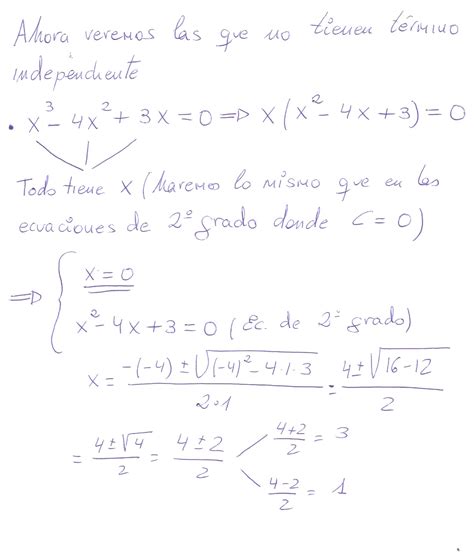 Ahora veremos las que no tienen término
independiente
• x³ - 4x² + 3x = 0 ⇒ x(x² - 4x + 3) = 0
Todo tiene x (Haremos lo mismo que en las
ecuaciones de 2º grado donde C = 0)
⇒ { x = 0
x² - 4x + 3 = 0 (Ec. de 2º grado)
x = (-(-4) ± √((-4)² - 4·1·3))/(2·1) = (4 ± √(16-12))/2
= (4 ± √4)/2 = (4 ± 2)/2
(4+2)/2 = 3
(4-2)/2 = 1